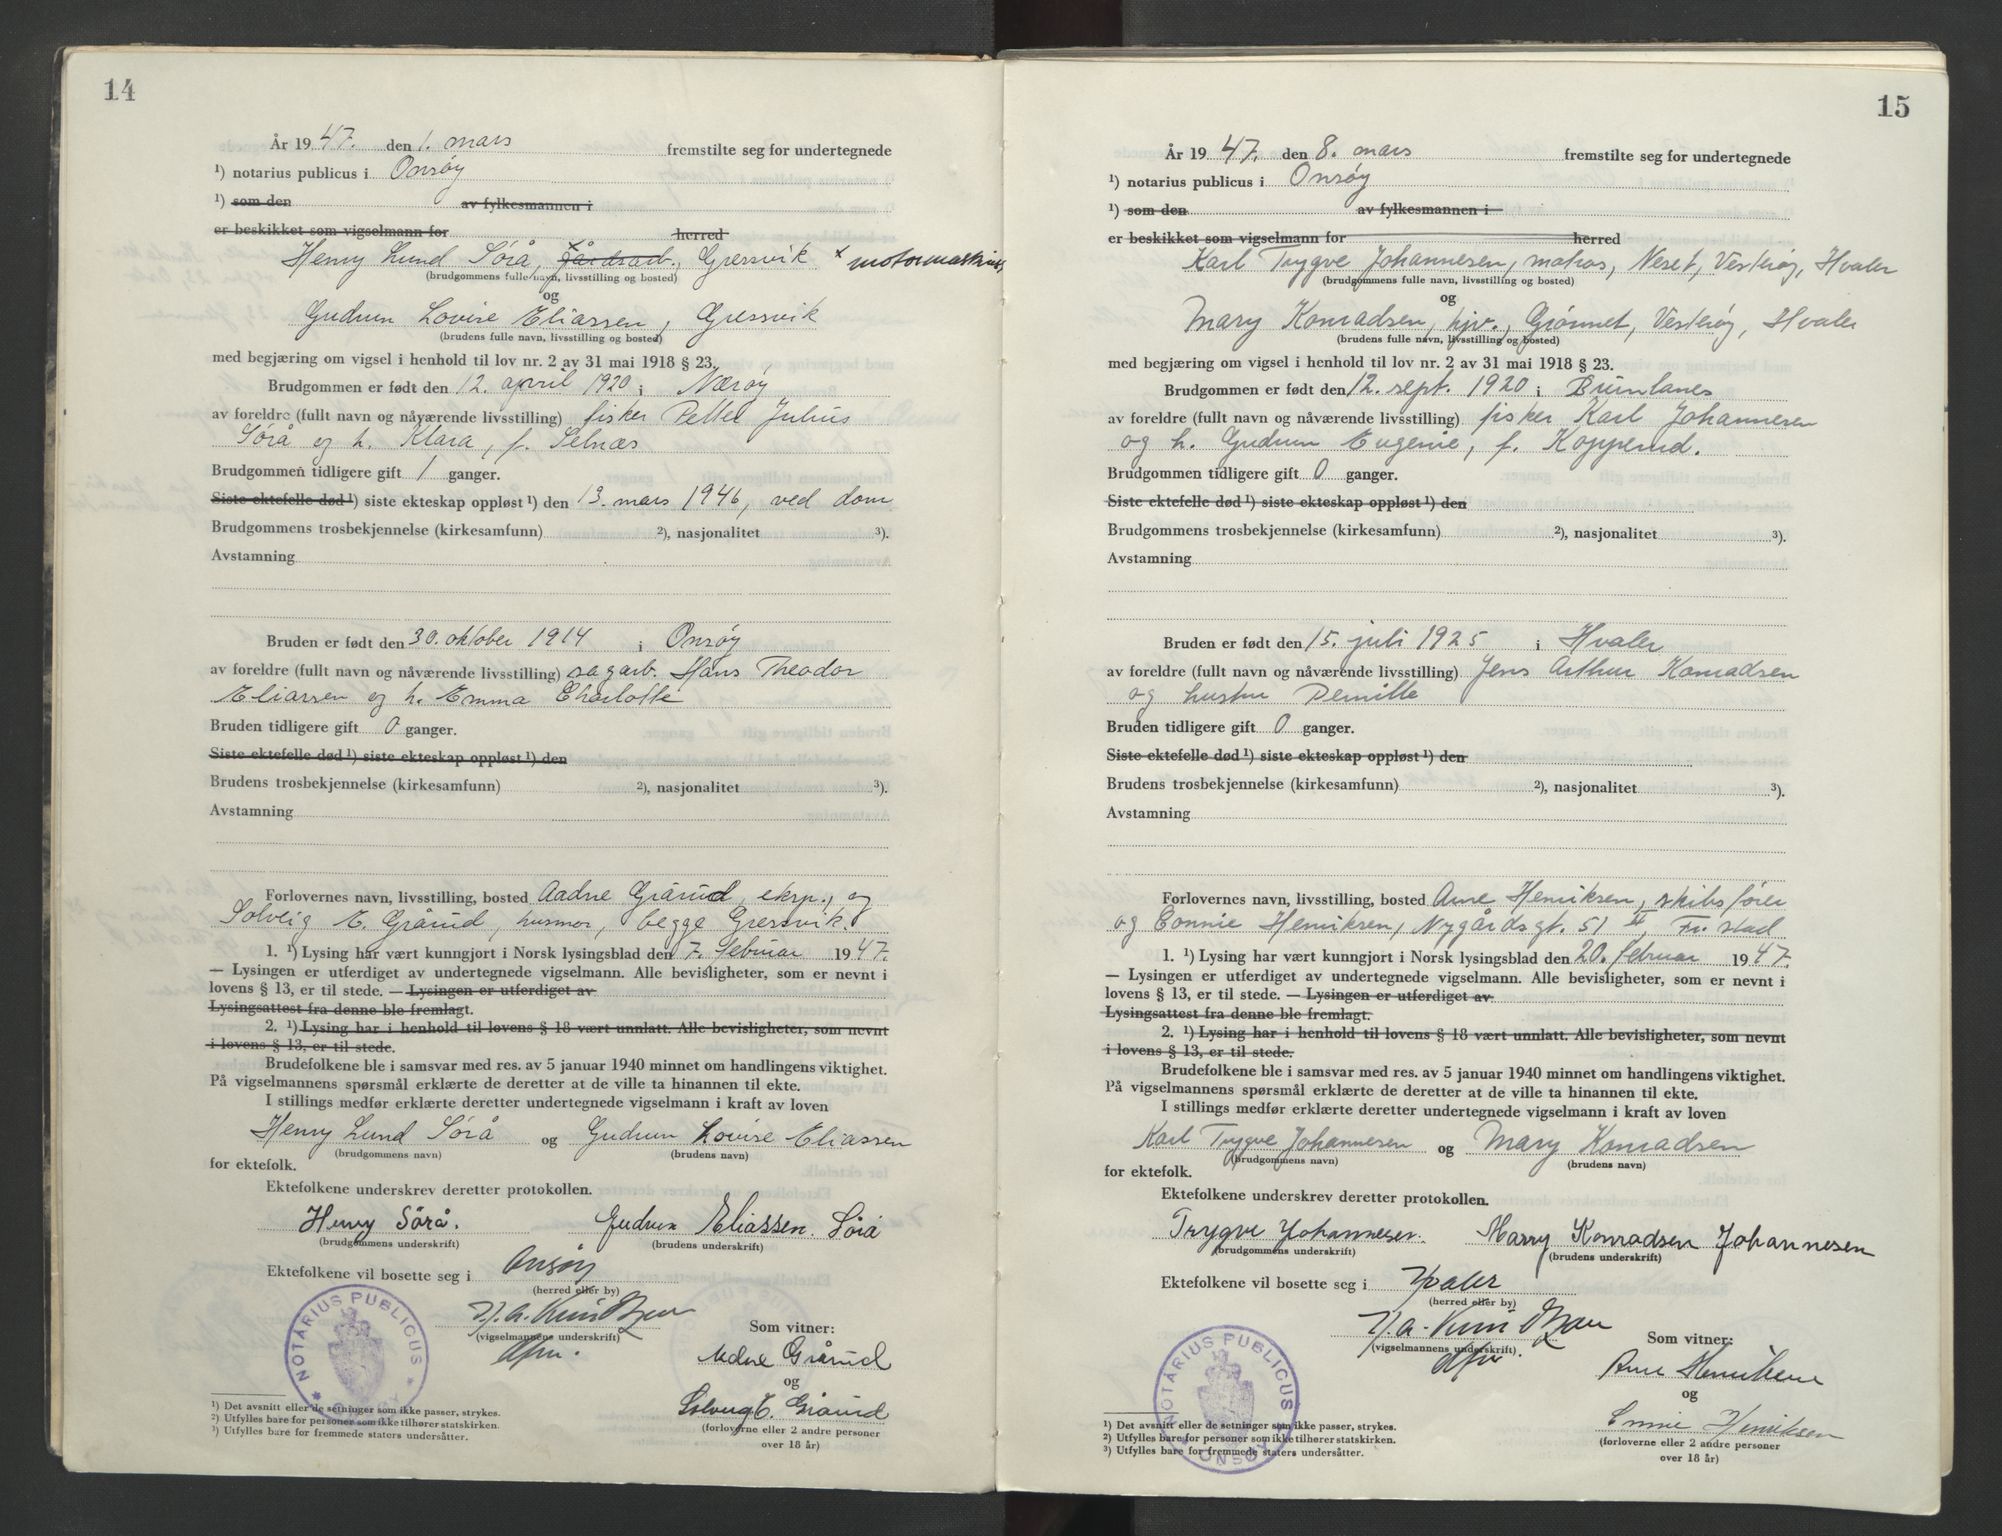 14
År 1947. den 1. mars fremstilte seg for undertegnede
¹) notarius publicus i Onsøy
¹) som den av fylkesmannen i
er beskikket som vigselmann for herred
Henry Lund Sørå, gårdsarb., Gressvik x motormaskinist,
(brudgommens fulle navn, livsstilling og bosted)
og
Gudrun Lovise Eliassen, Gressvik
(brudens fulle navn, livsstilling og bosted)
med begjæring om vigsel i henhold til lov nr. 2 av 31 mai 1918 § 23.
Brudgommen er født den 12. april 1920 i Nærøy
av foreldre (fullt navn og nåværende livsstilling) fisker Petter Julius
Sørå og h. Klara, f. Selnæs
Brudgommen tidligere gift 1 ganger.
Siste ektefelle død ¹) siste ekteskap oppløst ¹) den 13. mars 1946, ved dom
Brudgommens trosbekjennelse (kirkesamfunn) ²), nasjonalitet ³).
Avstamning
Bruden er født den 30. oktober 1914 i Onsøy
av foreldre (fullt navn og nåværende livsstilling) sagarb. Hans Theodor
Eliassen og h. Emma Charlotte
Bruden tidligere gift 0 ganger.
Siste ektefelle død ¹) siste ekteskap oppløst ¹) den
Brudens trosbekjennelse (kirkesamfunn) ²), nasjonalitet ³).
Avstamning
Forlovernes navn, livsstilling, bosted Aadne Grårud, eksp., og
Solveig E. Grårud, husmor, begge Gressvik.
1. ¹) Lysing har vært kunngjort i Norsk lysingsblad den 7. februar 1947.
— Lysingen er utferdiget av undertegnede vigselmann. Alle bevisligheter, som er nevnt i
lovens § 13, er til stede. — Lysingen er utferdiget av
Lysingsattest fra denne ble fremlagt.
2. ¹) Lysing har i henhold til lovens § 18 vært unnlatt. Alle bevisligheter, som nevnt
i lovens § 13, er til stede.
Brudefolkene ble i samsvar med res. av 5 januar 1940 minnet om handlingens viktighet.
På vigselmannens spørsmål erklærte de deretter at de ville ta hinannen til ekte.
I stillings medfør erklærte deretter undertegnede vigselmann i kraft av loven
Henry Lund Sørå og Gudrun Lovise Eliassen
(brudgommens navn) (brudens navn)
for ektefolk.
Ektefolkene underskrev deretter protokollen.
Henry Sörå. Gudrun Eliassen. Sörå
(brudgommens underskrift) (brudens underskrift)
Ektefolkene vil bosette seg i Onsøy
(herred eller by)
(vigselmannens underskrift)
NOTARIUS PUBLICUS
Som vitner:
Adne Grårud
og
Solveig E. Grårud
(forloverne eller 2 andre personer
over 18 år)
¹) Det avsnitt eller de setninger som ikke passer, strykes.
²) Utfylles bare for personer som ikke tilhører statskirken.
³) Utfylles bare for fremmede staters undersåtter.
15
År 1947. den 8. mars fremstilte seg for undertegnede
¹) notarius publicus i Onsøy
¹) som den av fylkesmannen i
er beskikket som vigselmann for herred
Karl Trygve Johannesen, matros, Neset, Vesterøy, Hvaler
(brudgommens fulle navn, livsstilling og bosted)
og
Mary Konradsen, hjv., Grønnet, Vesterøy, Hvaler
(brudens fulle navn, livsstilling og bosted)
med begjæring om vigsel i henhold til lov nr. 2 av 31 mai 1918 § 23.
Brudgommen er født den 12. sept. 1920 i Brunlanes
av foreldre (fullt navn og nåværende livsstilling) fisker Karl Johannesen
og h. Gudrun Eugenie, f. Kopperud.
Brudgommen tidligere gift 0 ganger.
Siste ektefelle død ¹) siste ekteskap oppløst ¹) den
Brudgommens trosbekjennelse (kirkesamfunn) ²), nasjonalitet ³).
Avstamning
Bruden er født den 15. juli 1925 i Hvaler
av foreldre (fullt navn og nåværende livsstilling) Jens Arthur Konradsen
og hustru Pernille
Bruden tidligere gift 0 ganger.
Siste ektefelle død ¹) siste ekteskap oppløst ¹) den
Brudens trosbekjennelse (kirkesamfunn) ²), nasjonalitet ³).
Avstamning
Forlovernes navn, livsstilling, bosted Arne Henriksen, skibsfører
og Connie Henriksen, Nygårdsgt. 51 II, Fr.stad
1. ¹) Lysing har vært kunngjort i Norsk lysingsblad den 20. februar 1947.
— Lysingen er utferdiget av undertegnede vigselmann. Alle bevisligheter, som er nevnt i
lovens § 13, er til stede. — Lysingen er utferdiget av
Lysingsattest fra denne ble fremlagt.
2. ¹) Lysing har i henhold til lovens § 18 vært unnlatt. Alle bevisligheter, som nevnt
i lovens § 13, er til stede.
Brudefolkene ble i samsvar med res. av 5 januar 1940 minnet om handlingens viktighet.
På vigselmannens spørsmål erklærte de deretter at de ville ta hinannen til ekte.
I stillings medfør erklærte deretter undertegnede vigselmann i kraft av loven
Karl Trygve Johannesen og Mary Konradsen
(brudgommens navn) (brudens navn)
for ektefolk.
Ektefolkene underskrev deretter protokollen.
Trygve Johannesen. Marry Konradsen Johannesen
(brudgommens underskrift) (brudens underskrift)
Ektefolkene vil bosette seg i Hvaler
(herred eller by)
(vigselmannens underskrift).
NOTARIUS PUBLICUS ONSØY
Som vitner:
Arne Henriksen
og
Connie Henriksen
(forloverne eller 2 andre personer
over 18 år)
¹) Det avsnitt eller de setninger som ikke passer, strykes.
²) Utfylles bare for personer som ikke tilhører statskirken.
³) Utfylles bare for fremmede staters undersåtter.